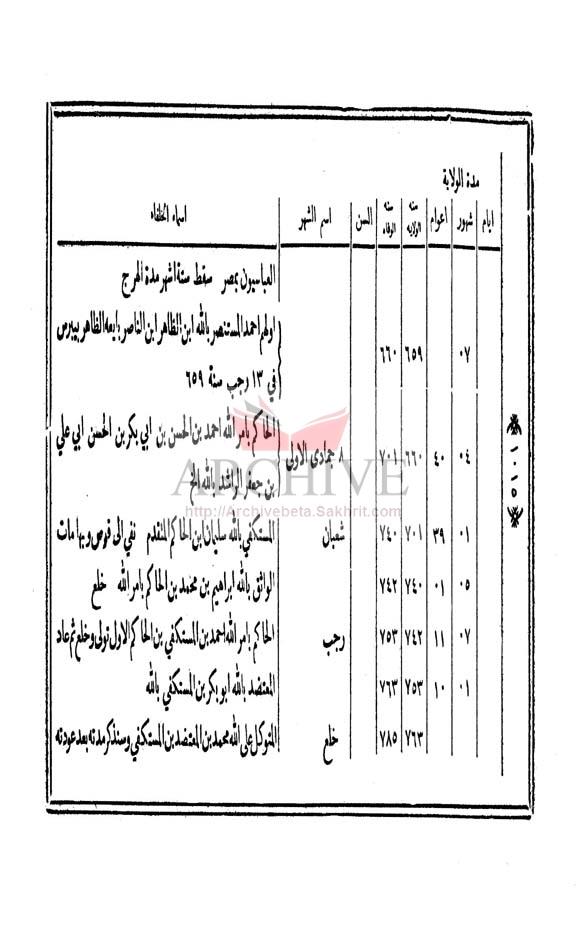 مدة الولاية
ايام | شهور | اعوام | سنه الولايه | سنه الوفاه | السن | اسم الشهر | اسماء الخلفاء
العباسيون بمصر سقط ستة اشهر مدة الهرج
٠٧ | ٦٥٩ | ٦٦٠ | اولهم احمد المستنصر بالله ابن الظاهر ابن الناصر بايعه الظاهر بيبرس
في ١٣ رجب سنة ٦٥٩
٠٤ | ٤٠ | ٦٦٠ | ٧٠١ | ٨ جمادى الاولى | الحاكم بامر الله احمد بن الحسن بن ابي بكر بن الحسن ابي علي
بن جعفر الراشد بالله الخ
٠١ | ٣٩ | ٧٠١ | ٧٤٠ | شعبان | المستكفي بالله سليمان ابن الحاكم المتقدم نفي الى قوص وبها مات
٠٥ | ٠١ | ٧٤٠ | ٧٤٢ | الواثق بالله ابراهيم بن محمد بن الحاكم بامر الله خلع
٠٧ | ١١ | ٧٤٢ | ٧٥٣ | رجب | الحاكم بامر الله احمد بن المستكفي بن الحاكم الاول تولى وخلع ثم عاد
٠١ | ١٠ | ٧٥٣ | ٧٦٣ | المعتضد بالله ابو بكر بن المستكفي بالله
٧٦٣ | ٧٨٥ | خلع | المتوكل على الله محمد بن المعتضد بن المستكفي وسنذكر مدته بعد عودته
١٠١٥
ARCHIVE
http://Archivebeta.Sakhrit.com